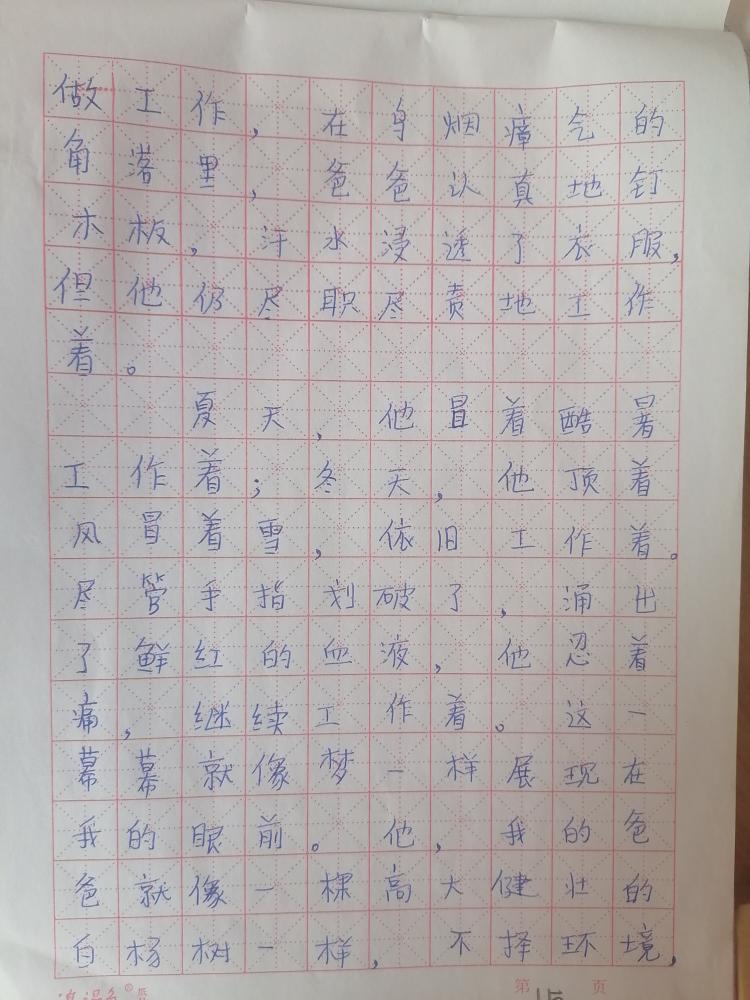 做工作，在乌烟瘴气的
角落里，爸爸认真地钉
木板，汗水浸透了衣服，
但他仍尽职尽责地工作
着。
夏天，他冒着酷暑
工作着；冬天，他顶着
风冒着雪，依旧工作着。
尽管手指划破了，涌出
了鲜红的血液，他忍着
痛，继续工作着。这一
幕幕就像梦一样展现在
我的眼前。他，我的爸
爸就像一棵高大健壮的
白杨树一样，不择环境，
第 页